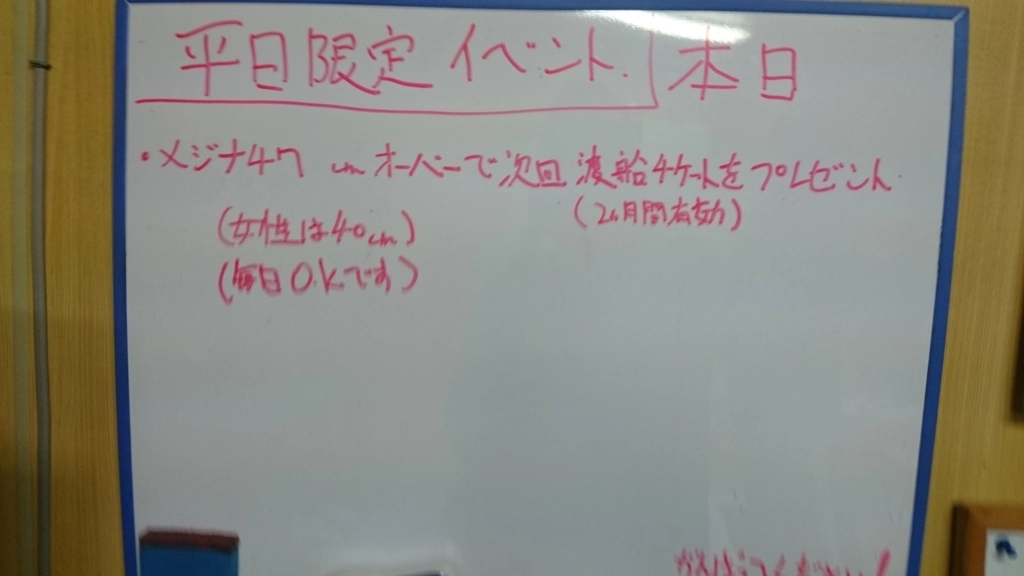 平日限定イベント. 本日
・メジナ47 cmオーバーで次回 渡船チケットをプレゼント.
(2ヶ月間有効)
(女性は40cm)
(毎日O.K.です)